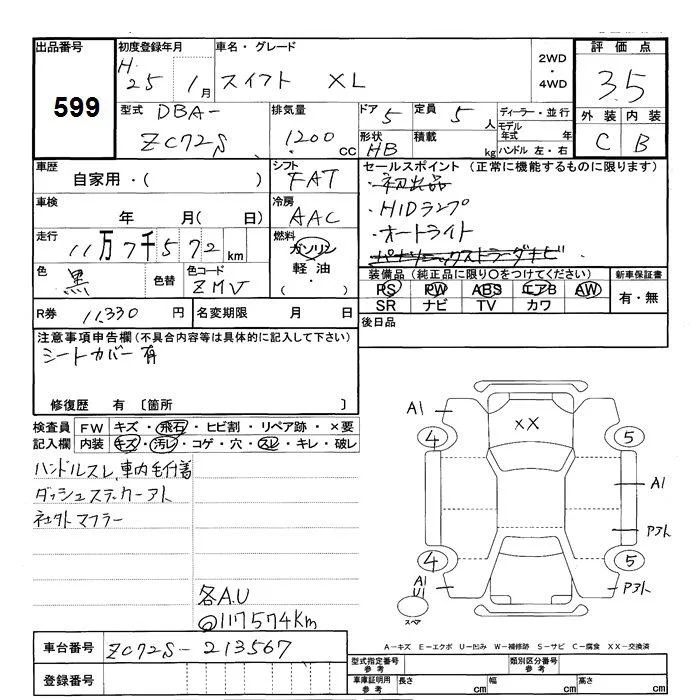 出品番号 599
初度登録年月 H. 25 1月
車名・グレード スイフト XL
2WD・4WD
評価点 3.5
型式 DBA- ZC72S
排気量 1200 cc
ドア 5
定員 5人
形状 HB
積載 kg
ディーラー・並行
モデル年式 年
ハンドル 左・右
外装 C
内装 B
車歴 自家用・( )
シフト FAT
車検 年 月( 日)
冷房 AAC
走行 11万7千572km
燃料 ガソリン 軽油 ・( )
色 黒
色替
色コード ZMV
セールスポイント (正常に機能するものに限ります)
・初出品
・HIDランプ
・オートライト
装備品(純正品に限り○をつけてください)
PS PW ABS エアB AW
SR ナビ TV カワ
新車保証書
有・無
R券 11,330円
名変期限 月 日
後日品
注意事項申告欄(不具合内容等は具体的に記入して下さい)
シートカバー有
修復歴 有 〔箇所 〕
検査員記入欄
FW キズ・飛石・ヒビ割・リペア跡・×要
内装 キズ・汚レ・コゲ・穴・スレ・キレ・破レ
ハンドルスレ、車内毛付着
ダッシュステッカーアト
社外マフラー
各A.U
@117574Km
A1
XX
4
5
A1
Pアト
4
5
A1
U1
Pアト
スペア
車台番号 ZC72S-213567
登録番号
A-キズ E-エクボ U-凹み W-補修跡 S-サビ C-腐食 XX-交換済
型式指定番号 参考
類別区分番号 参考
車庫証明用 参考 長さ cm 幅 cm 高さ cm